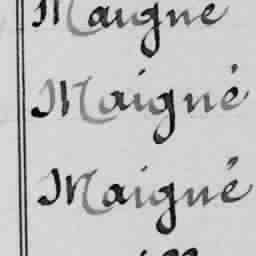 Maigné
Maigné
Maigné